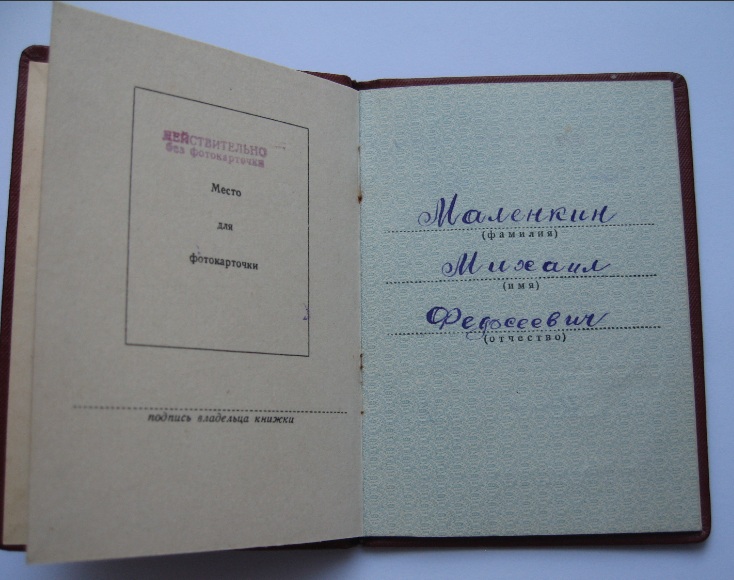 ДЕЙСТВИТЕЛЬНО
без фотокарточки
Место
для
фотокарточки
подпись владельца книжки
Маленкин
(фамилия)
Михаил
(имя)
Федосеевич
(отчество)